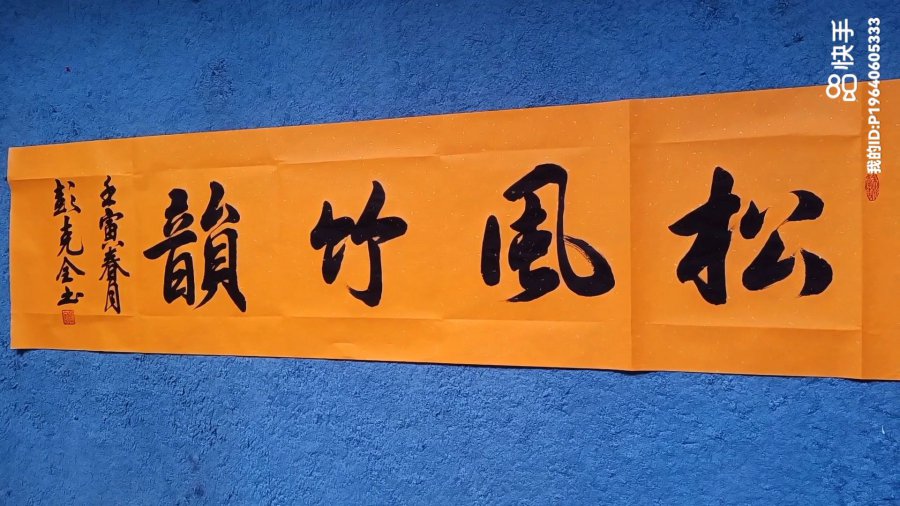 松風竹韻
壬寅春月
彭克全书
快手
我的ID:P19640605333